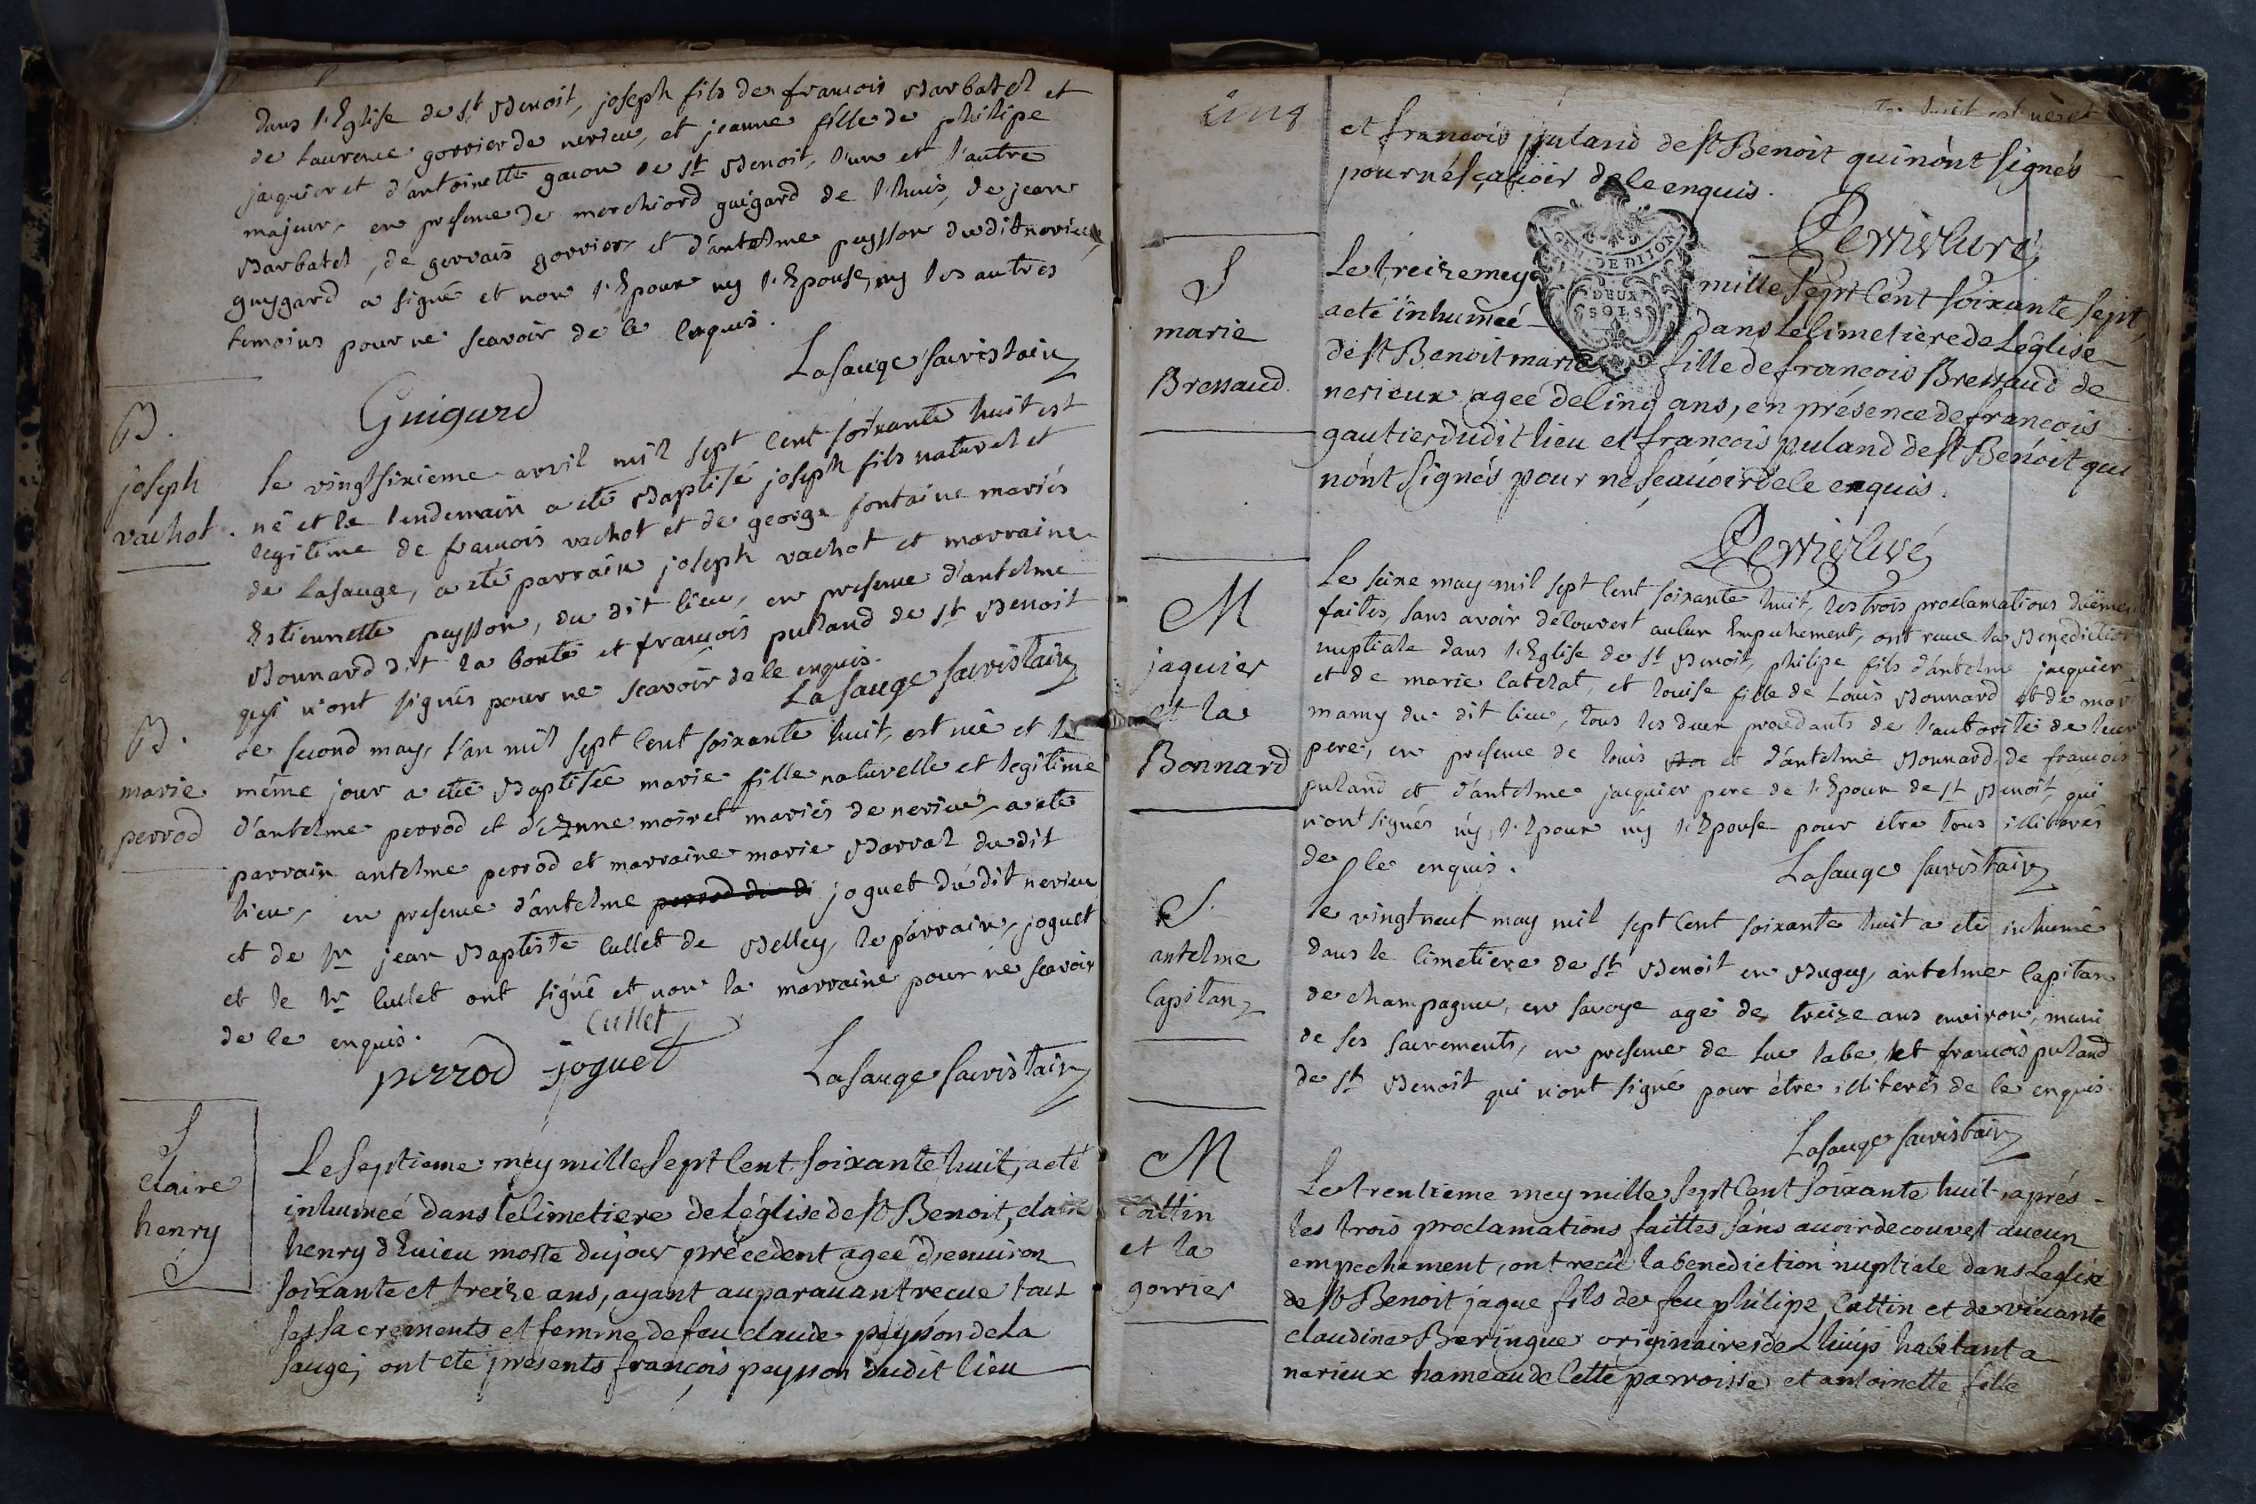 dans l'Eglise de St Benoit, joseph fils de francois Barbatel et
de Laurence gorrier de nerieu, et jeanne fille de philipe
jaquier et d'antoinette gacon de St Benoit, l'un et l'autre
majeur, en presence de merchiord guigard de l'huis, de jean
Barbatel, de gervais gorrier et d'antelme peysson dudit nerieu,
guygard a signé et non l'Epoux ny l'Epouse, ny les autres
temoins pour ne scavoir de ce enquis.
Lasauge sacristain
Guigard
B.
joseph
vachot.
le vingtsixieme avril mil sept cent soixante huit est
né et le lendemain a eté Baptisé joseph fils naturel et
legitime de francois vachot et de george fontaine mariés
de Lasauge, a eté parrain joseph vachot et marraine
Estiennette peysson, du dit lieu, en presence d'antelme
Bonnard dit la bonté et francois puland de St Benoit
qui n'ont signés pour ne scavoir de ce enquis.
Lasauge sacristain
B.
marie
perrod
le second may, l'an mil sept cent soixante huit, est née et le
méme jour a eté Baptisée marie fille naturelle et legitime
d'antelme perrod et d'Anne moiret mariés de nerieu, a eté
parrain antelme perrod et marraine marie Barral du dit
lieu, en presence d'antelme perrod du di joguet du dit nerieu
et de Sr jean Baptiste cullet de Belley, le parrain, joguet
et le Sr cullet ont signé et non la marraine pour ne scavoir
de ce enquis.
Cullet
perrod joguet
Lasauge sacristain
S
claire
henry
Le septieme mey mille sept cent soixante huit, a eté
inhumeé dans le cimetiere de Léglise de St Benoit, claire
henry d'Evieu morte du jour précedent ageé d'environ
soixante et treize ans, ayant auparavant recue tous
ses sacrements et femme de feu claude peysson de La
sauge, ont eté presents françois peysson dudit lieu
cinq
et francois puland de St Benoit qui n'ont signés
pour né sçavoir de ce enquis.
Perrieluré
GEN. DEDIION
DEUX
SOLS
S
marie
Bressaud.
Le treize mey mille sept cent soixante sept,
a eté inhumeé dans Le cimetiere de Léglise
de St Benoit marie fille de francois Bressaud de
nerieux ageé de cinq ans, en présence de francois
gautier dudit lieu et francois puland de St Benoit qui
n'ont signés pour ne scavoir de ce enquis.
Perrieluré
M
jaquier
et la
Bonnard
Le seize may mil sept cent soixante huit, les trois proclamations duëment
faites, sans avoir découvert aucun Empechement, ont recue la Benediction
nuptiale dans l'Eglise de St Benoit, philipe fils d'antelme jacquier
et de marie catelat, et louise fille de Louis Bonnard et de mar
mamy du dit lieu, tous les deux procedants de l'autorité de leur
pere, en presence de louis et d'antelme Bonnard, de francois
puland et d'antelme jacquier pere de l'Epoux de St Benoit, qui
n'ont signés ny l'Epoux ny l'Epouse pour etre tous illiterés
de ce enquis.
Lasauge sacristain
S.
antelme
Capitan
le vingt neuf may mil sept cent soixante huit a eté inhumé
dans le cimetiere de St Benoit en Bugey, antelme Capitan
de champagneu, en savoye agé de treize ans environ, muni
de ses sacrements, en presence de luc labe, et francois puland
de St Benoit qui n'ont signé pour étre illiterés de ce enquis.
Lasauge sacristain
M
Cattin
et la
gorrier
Le trentieme mey mille sept cent soixante huit, aprés
les trois proclamations faittes sans avoir decouvert aucun
empechement, ont recue la benediction nuptiale dans Leglise
de St Benoit jaque fils de feu philipe Cattin et de vivante
claudine Beringue originaires de Lhuys habitant a
nerieux hameau de Cette parroisse et antoinette fille